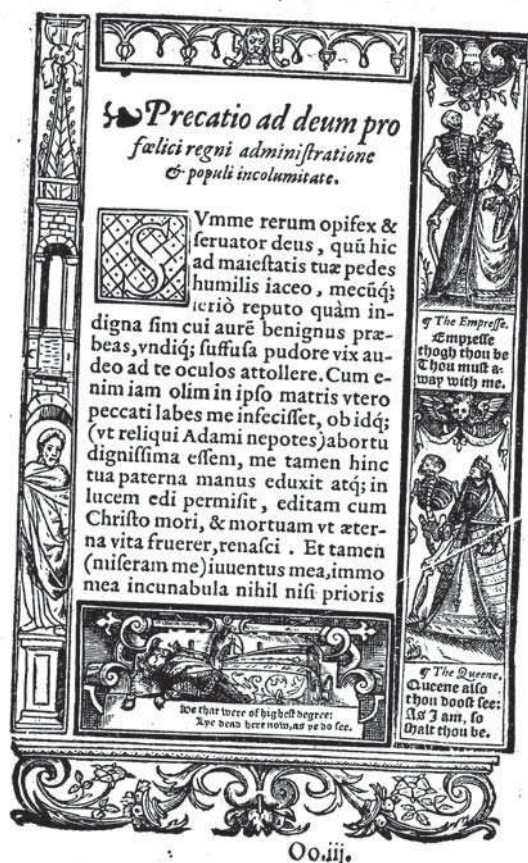 Precatio ad deum pro
fœlici regni adminiſtratione
& populi incolumitate.
SVmme rerum opifex &
ſeruator deus, quũ hic
ad maieſtatis tuæ pedes
humilis iaceo, mecũq;
ſeriò reputo quàm in-
digna ſim cui aurẽ benignus præ-
beas, vndiq; ſuffuſa pudore vix au-
deo ad te oculos attollere. Cum e-
nim iam olim in ipſo matris vtero
peccati labes me infeciſſet, ob idq;
(vt reliqui Adami nepotes) abortu
digniſſima eſſem, me tamen hinc
tua paterna manus eduxit atq; in
lucem edi permiſit, editam cum
Chriſto mori, & mortuam vt æter-
na vita fruerer, renaſci. Et tamen
(miſeram me) iuuentus mea, immo
mea incunabula nihil niſi prioris
¶ The Empreſſe.
Empreſſe
thogh thou be
Thou muſt a-
way with me.
¶ The Queene.
Queene alſo
thou dooſt ſee:
As I am, ſo
ſhalt thou be.
We that were of higheſt degree:
Lye dead here now, as ye do ſee.
Oo.iij.